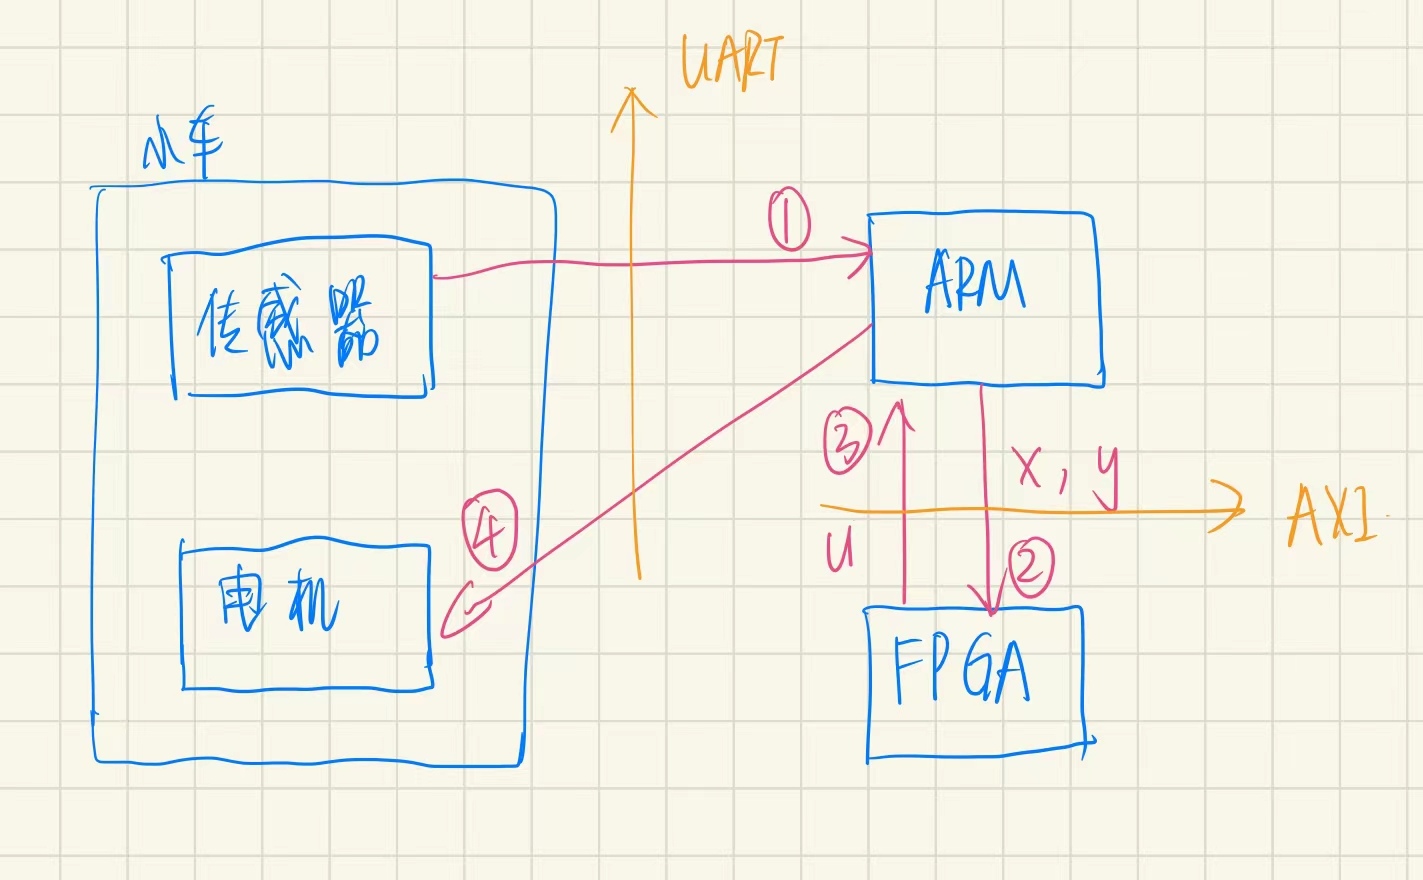 UART
小车
①
传感器
ARM
③
x, y
④
AXI
u
②
电机
FPGA